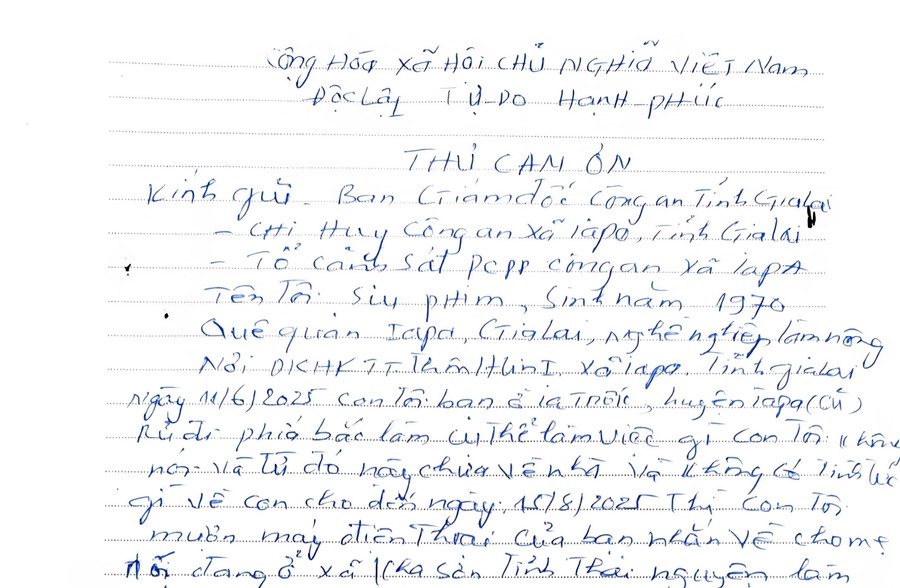 Cộng Hóa xã Hôi CHỦ NGHĨA VIỆT Nam
Độc Lập Tự Do HẠNH-PHÚC
THƯ CAM ƠN
Kính gửi - Ban Giám đốc Công an Tỉnh Gialai
- CHỉ Huy Công an xã iapờ, Tỉnh Gialai
- Tổ cảnh sát PCPP công an xã iapA
Tên Tôi: Siu PHim, Sinh năm 1970
Quê quán Iapa, Gialai, nghề nghiệp làm nông
Nơi DKHKTT xã iapa. Tỉnh gialai
Ngày 11/6/2025 con Tôi ban ở ia TRốk, huyện iapa (cũ)
Rủ đi phía bắc làm cụ thể làm việc gì con Tôi không
nói và từ đó nay chưa về nhà và không có Tinh tức
gì về con cho đến ngày: 15/8/2025 Thì con Tôi
muôn máy điện Thoại của ban nhắn về cho mẹ
nói đang ở xã Kha Sơn Tỉnh Thái nguyên làm